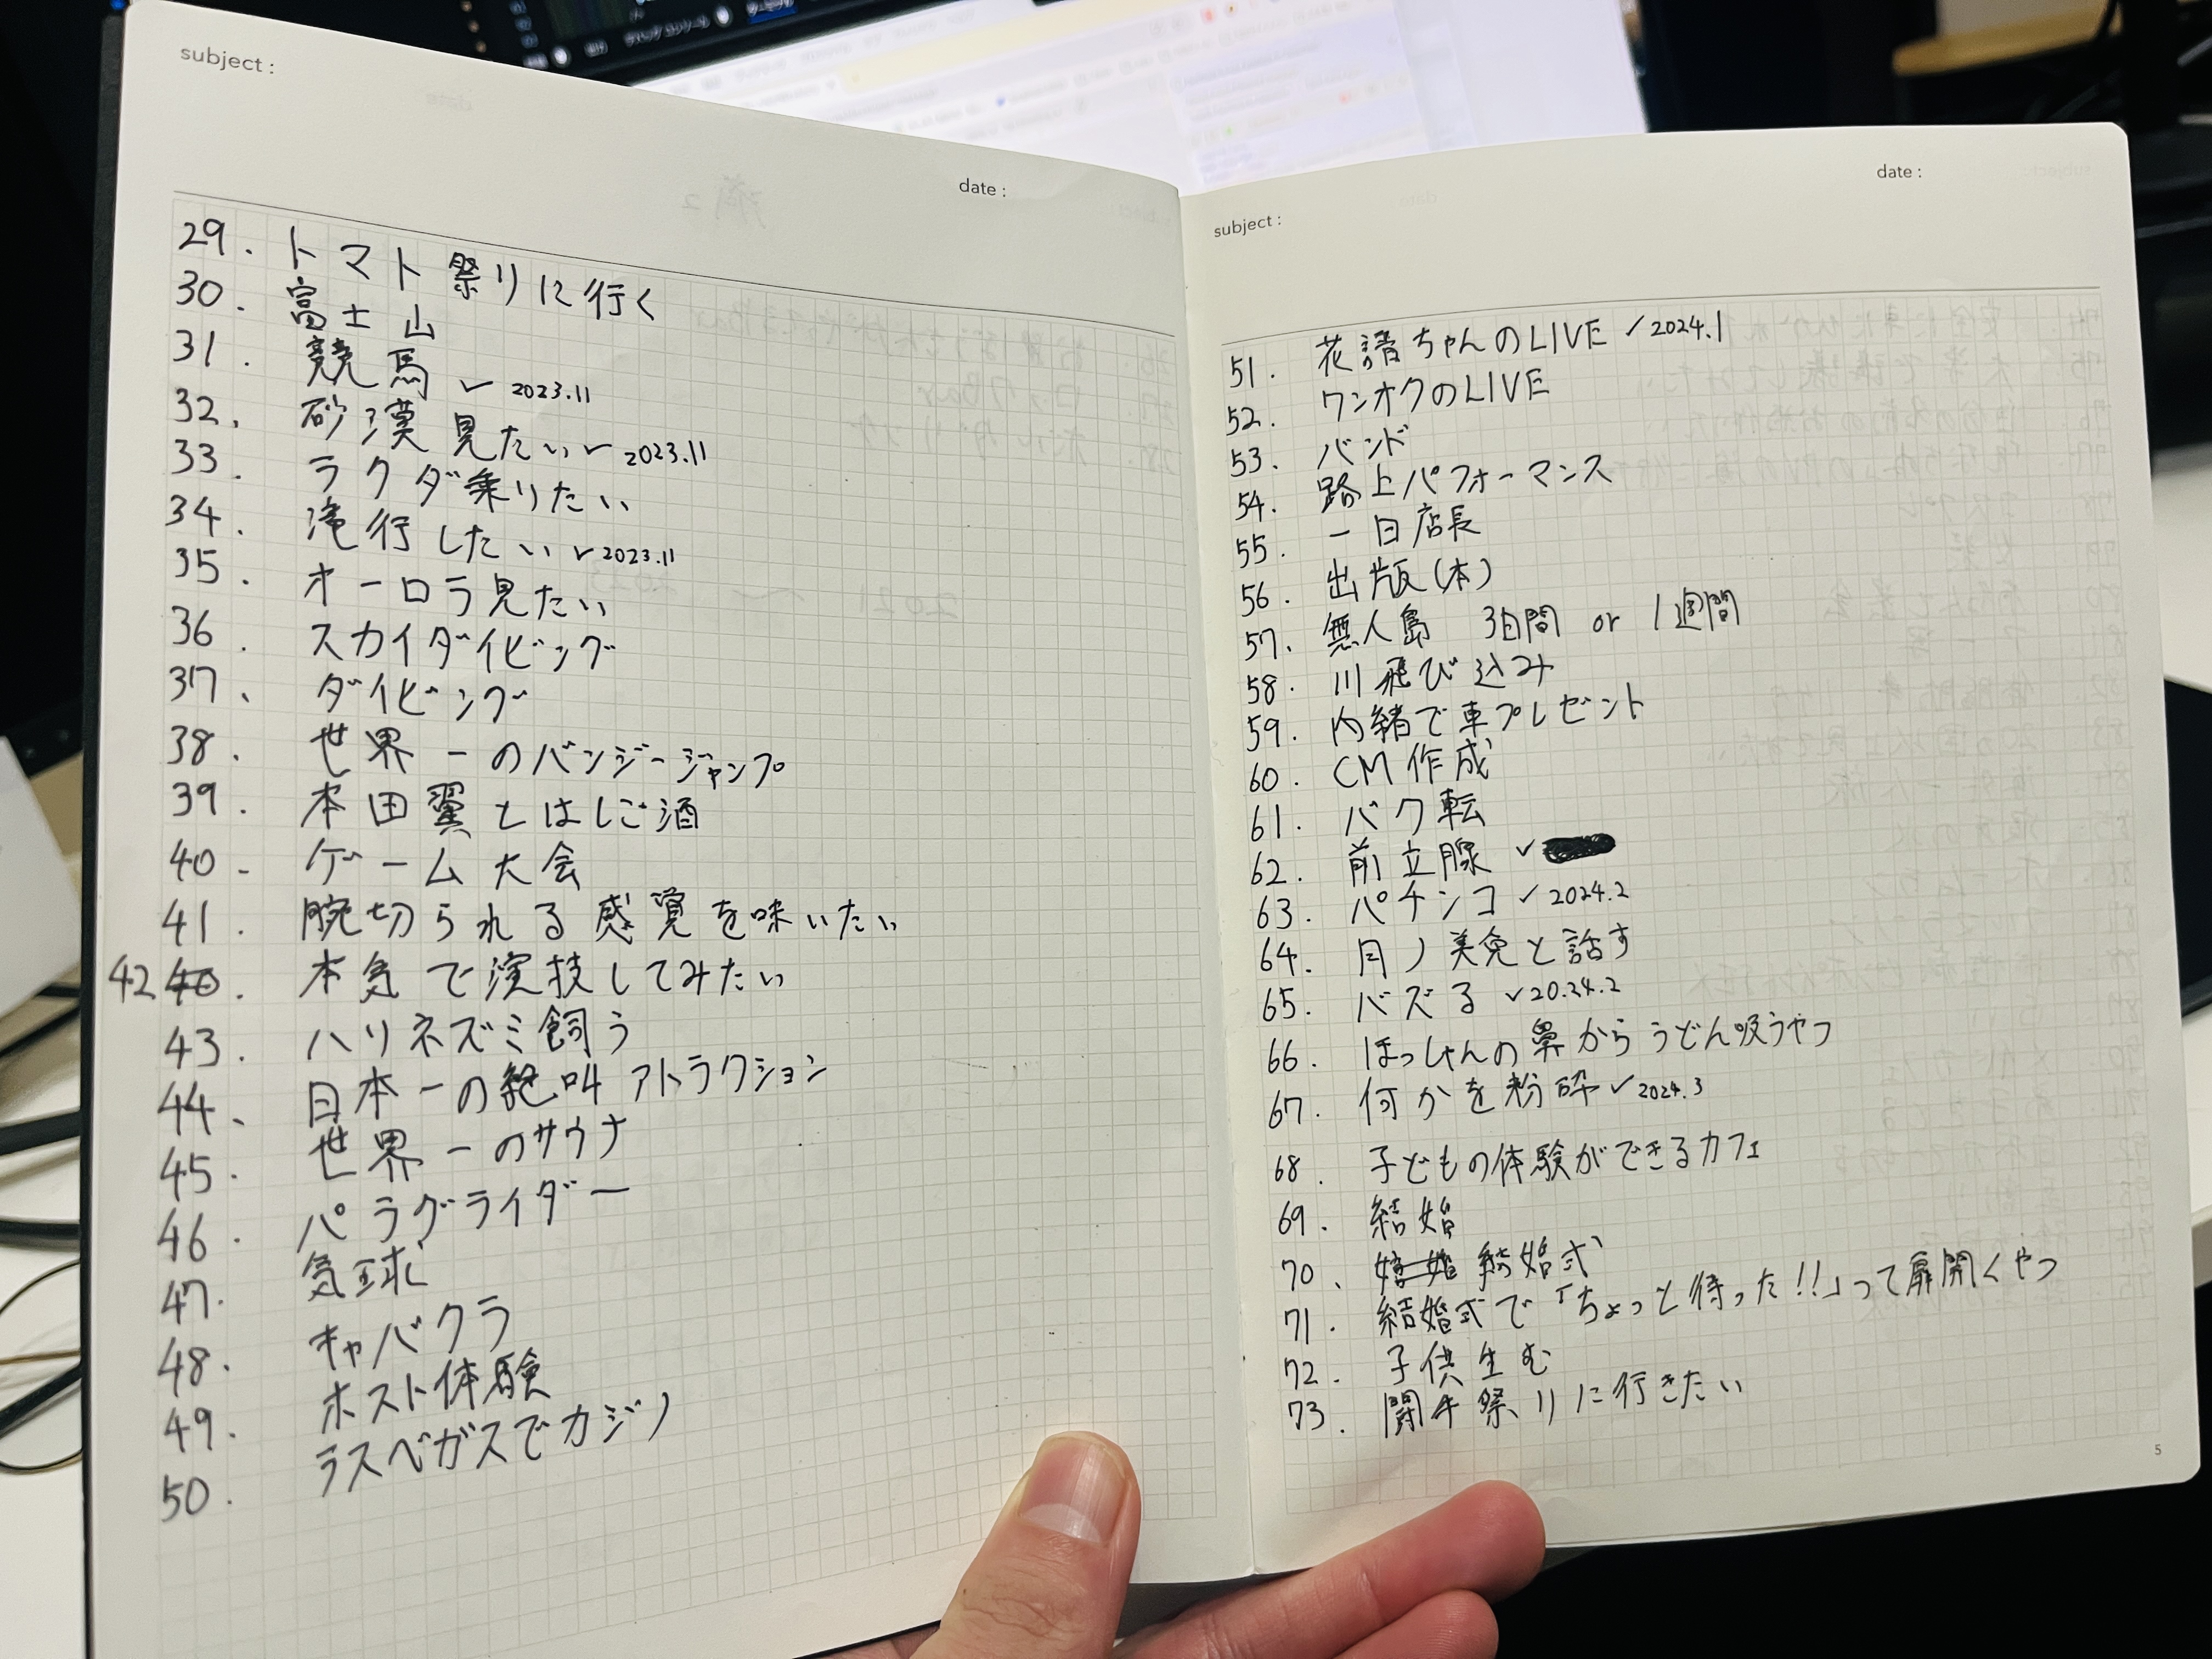 subject :
date :
29. トマト祭りに行く
30. 富士山
31. 競馬 ✓ 2023.11
32. 砂漠見たい ✓ 2023.11
33. ラクダ乗りたい
34. 滝行したい ✓ 2023.11
35. オーロラ見たい
36. スカイダイビング
37. ダイビング
38. 世界一のバンジージャンプ
39. 本田翼とはしご酒
40. ゲーム大会
41. 腕切られる感覚を味いたい
42 40. 本気で演技してみたい
43. ハリネズミ飼う
44. 日本一の絶叫アトラクション
45. 世界一のサウナ
46. パラグライダー
47. 気球
48. キャバクラ
49. ホスト体験
50. ラスベガスでカジノ
subject :
date :
51. 花譜ちゃんのLIVE ✓ 2024.1
52. ワンオクのLIVE
53. バンド
54. 路上パフォーマンス
55. 一日店長
56. 出版(本)
57. 無人島 3日間 or 1週間
58. 川飛び込み
59. 内緒で車プレゼント
60. CM作成
61. バク転
62. 前立腺 ✓
63. パチンコ ✓ 2024.2
64. 月ノ美兎と話す
65. バズる ✓ 20.24.2
66. ほっしゃんの鼻からうどん吸うやつ
67. 何かを粉砕 ✓ 2024.3
68. 子どもの体験ができるカフェ
69. 結婚
70. 結婚式
71. 結婚式で「ちょっと待った!!」って扉開くやつ
72. 子供生む
73. 祭りに行きたい
5